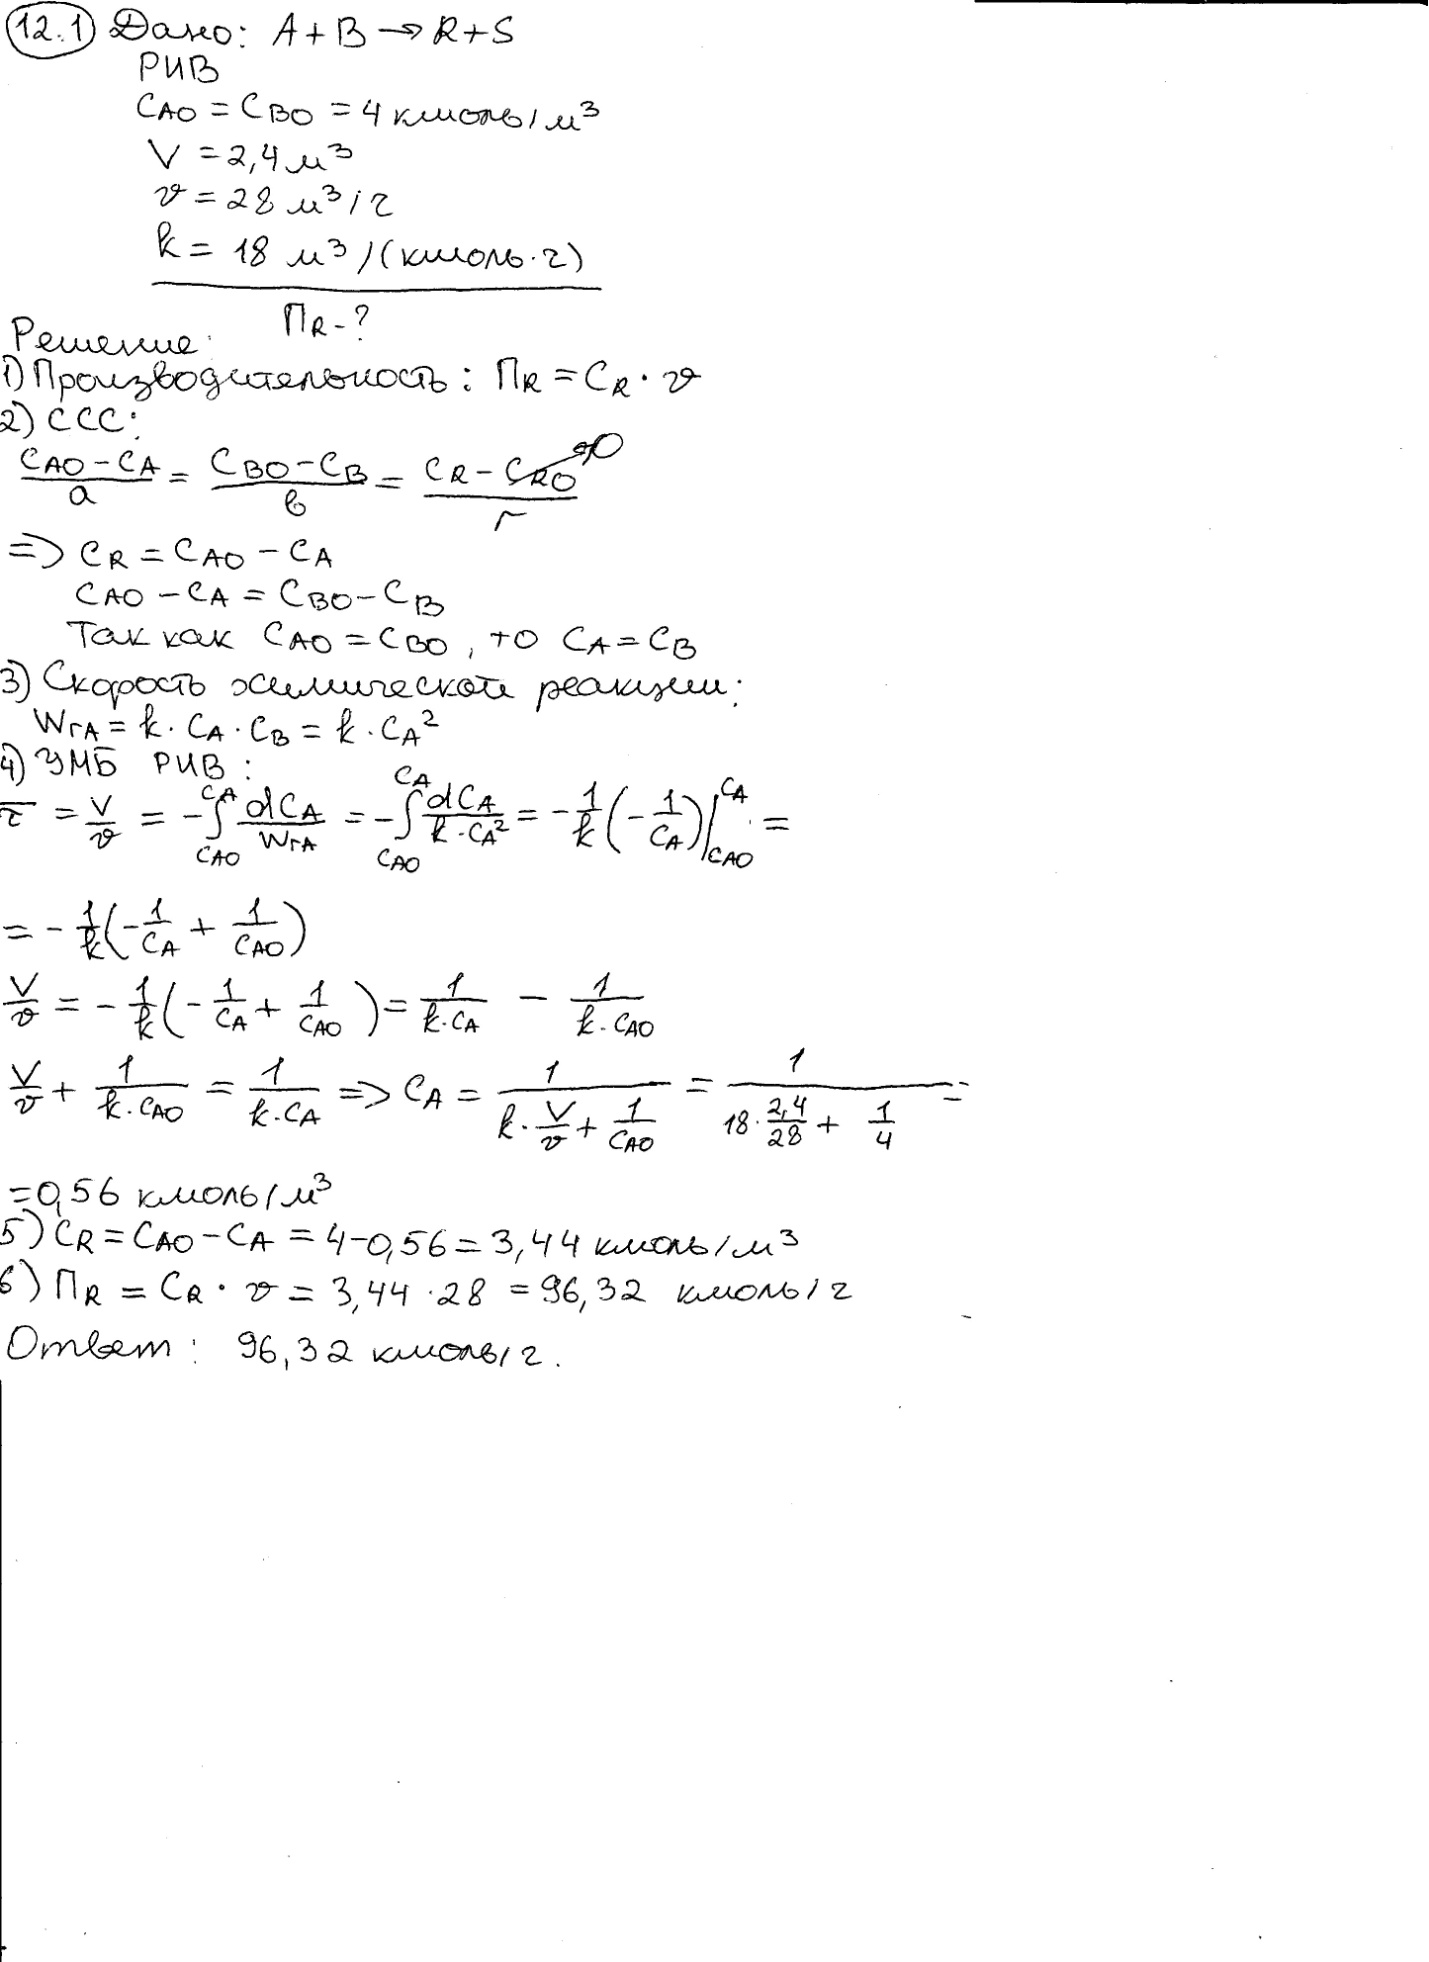 12.1 Дано: A+B → R+S
РИВ
CAO = CBO = 4 кмоль/м³
V = 2,4 м³
v = 28 м³/ч
k = 18 м³/(кмоль·ч)
ПR - ?
Решение:
1) Производительность: ПR = CR · v
2) ССС:
(CAO - CA)/a = (CBO - CB)/в = (CR - CRO→0)/r
=> CR = CAO - CA
CAO - CA = CBO - CB
Так как CAO = CBO, то CA = CB
3) Скорость химической реакции:
WrA = k · CA · CB = k · CA²
4) УМБ РИВ:
τ̅ = V/v = -∫CAO^CA dCA/WrA = -∫CAO^CA dCA/(k·CA²) = -1/k (-1/CA)|CAO^CA =
= -1/k (-1/CA + 1/CAO)
V/v = -1/k (-1/CA + 1/CAO) = 1/(k·CA) - 1/(k·CAO)
V/v + 1/(k·CAO) = 1/(k·CA) => CA = 1/(k·V/v + 1/CAO) = 1/(18·2,4/28 + 1/4) =
= 0,56 кмоль/м³
5) CR = CAO - CA = 4 - 0,56 = 3,44 кмоль/м³
6) ПR = CR · v = 3,44 · 28 = 96,32 кмоль/ч
Ответ: 96,32 кмоль/ч.